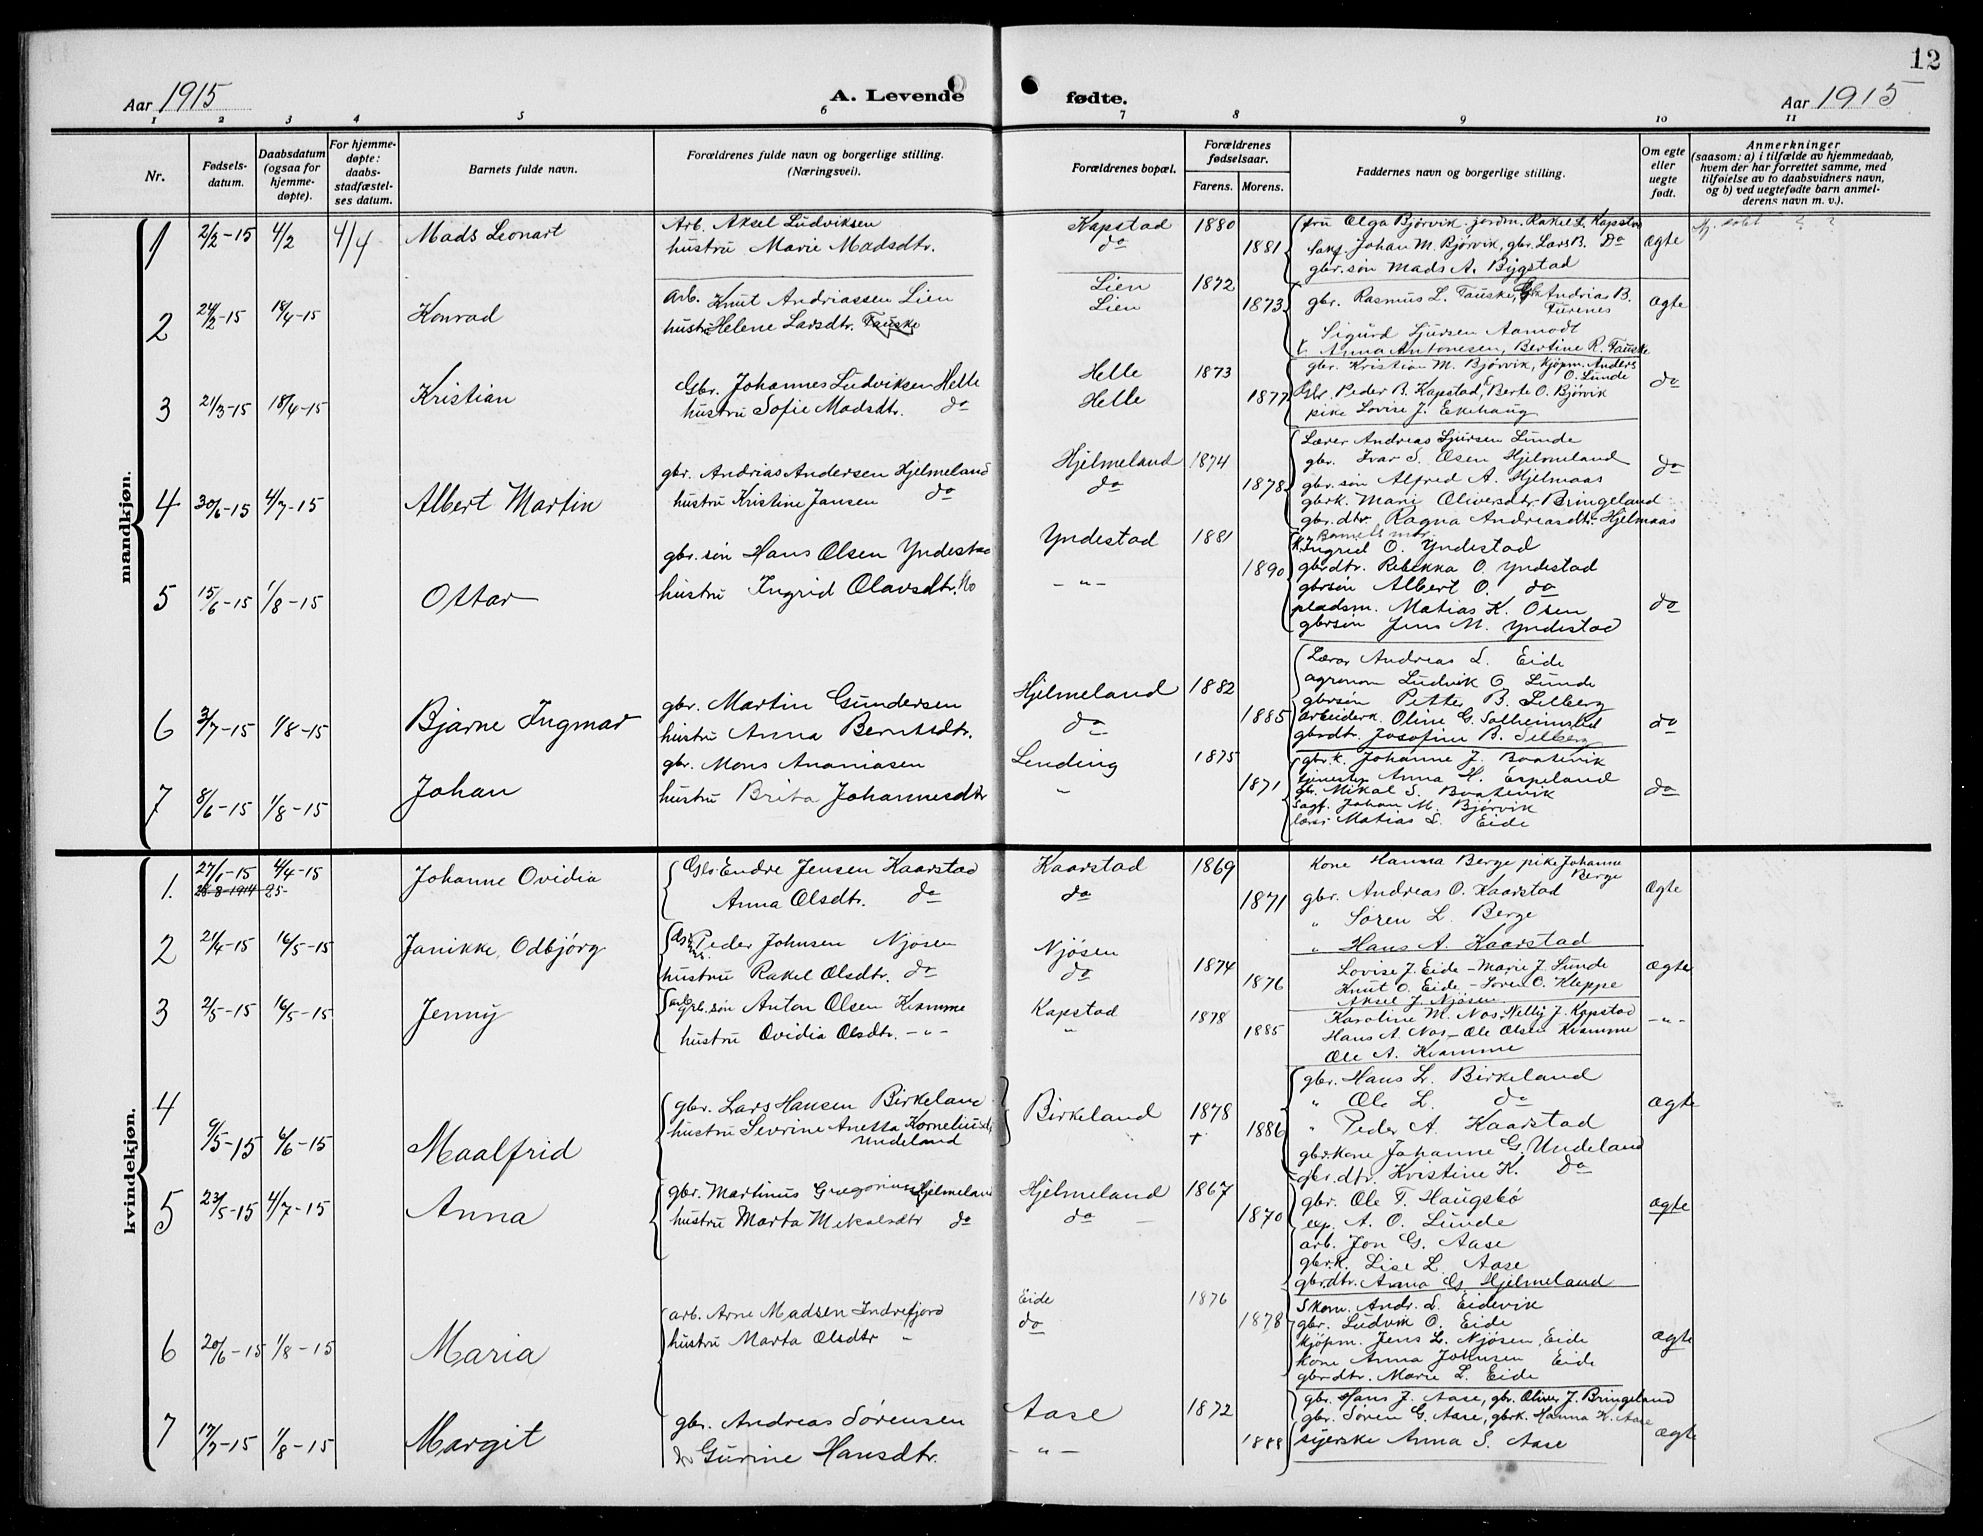 12
Aar 1915
A. Levende
fødte.
Aar 1915
1 2 3 4 5 6 7 8 9 10 11
Nr.
Fødsels-
datum.
Daabsdatum
(ogsaa for
hjemme-
døpte).
For hjemme-
døpte:
daabs-
stadfæstel-
ses datum.
Barnets fulde navn.
Forældrenes fulde navn og borgerlige stilling.
(Næringsvei).
Forældrenes bopæl.
Forældrenes
fødselsaar.
Farens. Morens.
Faddernes navn og borgerlige stilling.
Om egte
eller
uegte
født.
Anmerkninger
(saasom: a) i tilfælde av hjemmedaab,
hvem der har forrettet samme, med
tilføielse av to daabsvidners navn,
og b) ved uegtefødte barn anmel-
derens navn m. v.).
mandkjøn.
1 2/2-15 4/2 4/4 Mads Leonart
Arb. Aksel Ludviksen
hustru Marie Madsdtr.
Kapstad
do
1880
1881
fru Olga Bjørvik, jordm. Rakel L. Kapstad
Sakf. Johan M. Bjørvik, gbr. Lars B. Do
gbr. søn Mads A. Bygstad
Ægte
2 24/2-15 18/4-15 Konrad
Arb. Knut Andriassen Lien
hustru Helene Larsdtr. Fauske
Lien
Lien
1872
1873
gbr. Rasmus L. Fauske, Andrias B.
Furenes
Sigurd Sjursen Aamodt
Anna Antonesen, Bertine R. Fauske
Ægte
3 21/3-15 18/4-15 Kristian
Gbr. Johannes Ludviksen Helle
hustru Sofie Madsdtr. do
Helle
Helle
1873
1877
gbr. Kristian M. Bjørvik, kjøpm. Anders
O. Lunde
Gbr. Peder B. Kapstad, Berte O. Bjørvik
pike Lovise J. Ekehaug
do
4 30/6-15 4/7-15 Albert Martin
gbr. Andrias Andersen Hjelmeland
hustru Kristine Jansen do
Hjelmeland
do
1874
1878
Lærer Andreas Sjursen Lunde
gbr. Ivar S. Osen Hjelmeland
gbr. søn Alfred A. Hjelmaas
gbrk. Mari Oliversdtr. Bringeland
gbr. dtr. Ragna Andreasdtr. Hjelmaas
do
5 15/6-15 1/8-15 Ottar
gbr. søn Hans Olsen Yndestad
hustru Ingrid Olavsdtr. do
Yndestad
- " -
1881
1890
Barnets mor
k. Ingrid O. Yndestad
gbrdtr. Rebekka O. Yndestad
gbrsøn Albert O. do
pladsm. Matias K. Osen
gbrsøn Jens M. Yndestad
do
6 3/7-15 1/8-15 Bjarne Ingmar
gbr. Martin Gundersen
hustru Anna Berntsdtr.
Hjelmeland
do
1882
1885
Lærer Andreas L. Eide
agronom Ludvik O. Lunde
gbrsøn Petter B. Selberg
arbeiderk. Oline G. Solheimslid
gbrdtr. Josefine B. Selberg
do
7 8/6-15 1/8-15 Johan
gbr. Mons Ananiasen
hustru Brita Johannesdtr
Lending
"
1875
1871
gbr. k. Johanne J. Baatevik
tjenestep. Anna H. Espeland
gbr. Mikal S. Baatevik
Sagf. Johan M. Bjørvik
lærer Matias L. Eide
do
kvindekjøn.
1. 27/1-15 4/4-15 Johanne Ovidia
28-8-1914 25-
Gbr. Endre Jensen Kaarstad
Anna Olsdtr. do
Kaarstad
do
1869
1871
Kone Hanna Berge pike Johanne
Berge
gbr. Andreas O. Kaarstad
" Søren L. Berge
" Hans A. Kaarstad
Ægte
2 21/4-15 16/5-15 Janikke Odbjørg
Peder Johnsen Njøsen
hustru Rakel Olsdtr. do
Njøsen
do
1874
1876
Lovise J. Eide - Marie J. Lunde
Knut O. Eide - Søren O. Kleppe
Aksel J. Njøsen
Ægte
3 2/5-15 16/5-15 Jenny
Gbr. søn Anton Olsen Kvamme
hustru Ovidia Olsdtr. - " -
Kapstad
"
1878
1885
Karoline M. Nos, Nelly J. Kapstad
Hans A. Nos - Ole Olsen Kvamme
Ole A. Kvamme
- " -
4 9/5-15 6/6-15 Maalfrid
gbr. Lars Hansen Birkeland
hustru Severine Anetta Korneliusdtr
Undeland
Birkeland
1878
+
1886
gbr. Hans L. Birkeland
" Ole L. do
" Peder A. Kaarstad
gbr. kone Johanne G. Undeland
gbr. dtr. Kristine K. Do
Ægte
5 23/5-15 4/7-15 Anna
gbr. Martinus Gregoriusen Hjelmeland
hustru Marta Mikalsdtr do
Hjelmeland
do
1867
1870
gbr. Ole T. Haugsbø
exp. A. O. Lunde
arb. Jon G. Aase
gbrk. Lise L. Aase
gbrdtr. Anna G. Hjelmeland
ægte
6 20/6-15 1/8-15 Maria
arb. Arne Madsen Indrefjord
hustru Marta Olsdtr "
Eide
do
1876
1878
Skom. Andr. L. Eidevik
gbr. Ludvik O. Eide
kjøpm. Jens L. Njøsen, Eide
Kone Anna Johnsen Eide
gbrdtr. Marie L. Eide
Ægte
7 17/7-15 1/8-15 Margit
gbr. Andreas Sørensen
Gurine Hansdtr.
Aase
- " -
1872
1888
gbr. Hans J. Aase, gbr. Oliver J. Bringeland
gbr. Søren G. Aase, gbrk. Hanna K. Aase
syerske Anna S. Aase
Ægte